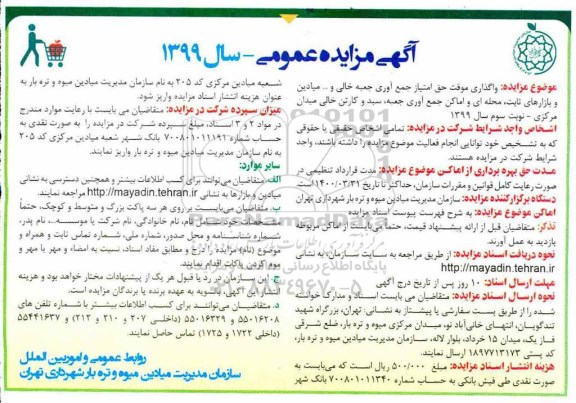 آگهی مزایده عمومی - سال ۱۳۹۹
موضوع مزایده: واگذاری موقت حق امتیاز جمع آوری جعبه خالی و ... میادین
و بازارهای ثابت، محله ای و اماکن جمع آوری جعبه، سبد و کارتن خالی میدان
مرکزی - نوبت سوم سال ۱۳۹۹
اشخاص واجد شرایط شرکت در مزایده: تمامی اشخاص حقیقی یا حقوقی
که به تشخیص خود توانایی انجام فعالیت موضوع مزایده را داشته باشند، واجد
شرایط شرکت در مزایده هستند.
مدت حق بهره برداری از اماکن موضوع مزایده: مدت قرارداد تنظیمی در
صورت رعایت کامل قوانین و مقررات سازمان، حداکثر تا تاریخ ۱۴۰۰/۰۳/۳۱ است
دستگاه برگزارکننده مزایده: سازمان مدیریت میادین میوه و تره بار شهرداری تهران
اماکن موضوع مزایده: به شرح فهرست پیوست اسناد مزایده
تذکر: متقاضیان قبل از ارائه پیشنهاد قیمت، حتماً می بایست از اماکن مربوطه
بازدید به عمل آورند.
نحوه دریافت اسناد مزایده: از طریق مراجعه به سایت سازمان، به نشانی
http://mayadin.tehran.ir
مهلت ارسال اسناد: ۱۰ روز پس از تاریخ درج آگهی
نحوه ارسال اسناد مزایده: متقاضیان می بایست اسناد و مدارک خواسته
شده را از طریق پست سفارشی یا پیشتاز به نشانی: تهران، بزرگراه شهید
تندگویان، انتهای خانی آباد نو، میدان مرکزی میوه و تره بار، ضلع شرقی
فاز یک، میدان ۱۵ خرداد، بلوار لاله، سازمان مدیریت میادین میوه و تره بار،
کد پستی ۱۸۹۷۷۱۳۱۷۳ ارسال نمایند.
هزینه انتشار اسناد مزایده: مبلغ ۵۰۰/۰۰۰ ریال است که می بایست به
صورت نقدی طی فیش بانکی به حساب شماره ۷۰۰۸۰۱۰۱۱۳۴۰ بانک شهر
شعبه میادین مرکزی کد ۲۰۵ به نام سازمان مدیریت میادین میوه و تره بار به
عنوان هزینه انتشار اسناد مزایده واریز شود.
میزان سپرده شرکت در مزایده: متقاضیان می بایست با رعایت موارد مندرج
در مواد ۲ و ۳ اسناد، مبلغ سپرده شرکت در مزایده را به صورت نقدی به
حساب شماره ۷۰۰۸۰۱۰۱۱۱۹۲ بانک شهر شعبه میادین مرکزی کد ۲۰۵
به نام سازمان مدیریت میادین میوه و تره بار واریز نمایند.
سایر موارد:
الف- متقاضیان می توانند برای کسب اطلاعات بیشتر و همچنین دسترسی به نشانی
میادین و بازارها به نشانی http://mayadin.tehran.ir مراجعه نمایند.
ب- متقاضیان می بایست بر روی هر سه پاکت بزرگ و متوسط و کوچک، حتماً
مشخصات خود شامل نام، نام خانوادگی، نام شرکت یا موسسه...، نام پدر،
شماره شناسنامه و محل صدور، شماره ملی، شماره تماس ثابت و همراه و
موضوع (نام) مزایده را درج و مطابق مفاد اسناد، نسبت به امضاء و مهر یا مهر و
موم کردن پاکات اقدام نمایند.
ج- این سازمان در رد یا قبول هر یک از پیشنهادات مختار خواهد بود و هزینه
انتشار این آگهی، بالسویه به عهده برنده یا برندگان مزایده است.
د- متقاضیان می توانند برای کسب اطلاعات بیشتر با شماره تلفن های
۵۵۰۱۶۲۰۸ و ۵۵۰۱۶۳۲۹ (داخلی ۲۰۷ و ۲۱۰ و ۲۱۲) و ۵۵۴۴۱۶۳۷
(داخلی ۱۷۲۲ و ۱۷۲۵) تماس حاصل نمایند.
روابط عمومی و امور بین الملل
سازمان مدیریت میادین میوه و تره بار شهرداری تهران